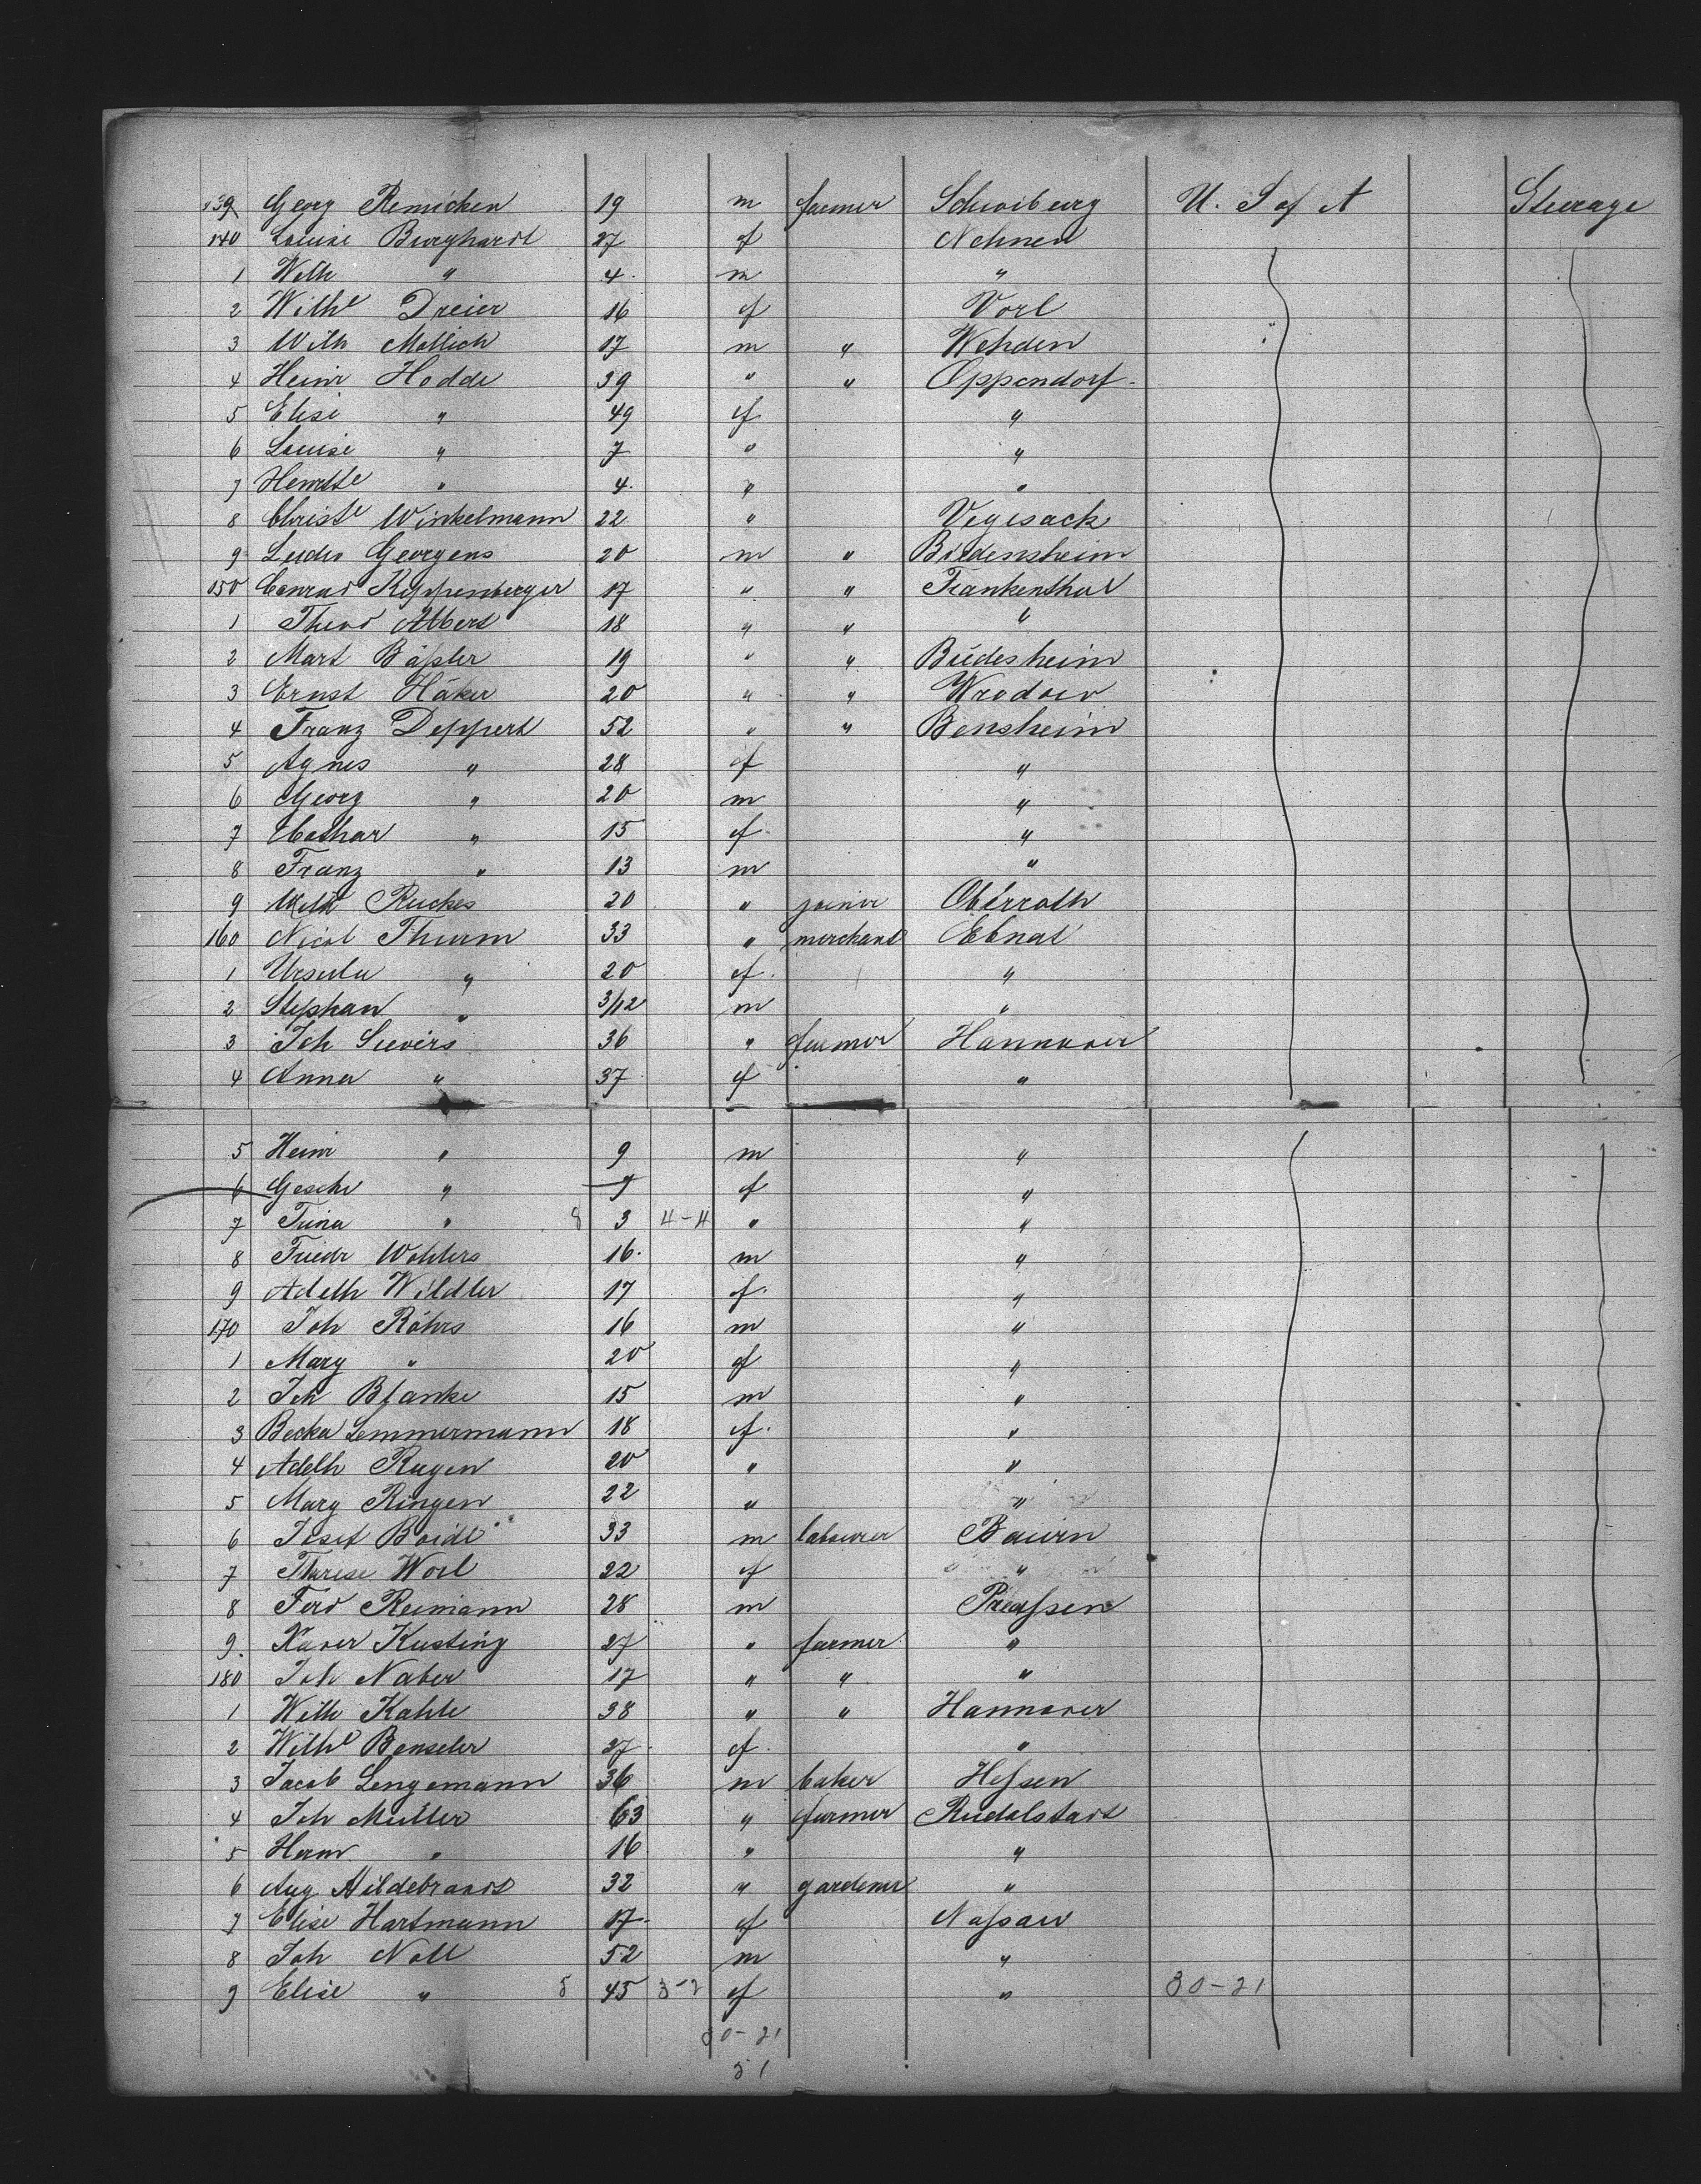 139 Georg Remicken 19 m farmer Schwiburg U. S of A Steerage
140 Louise Burghardt 27 f Nehnen
1 Wilh " 4 m "
2 Wilhe Dreier 16 f Vorl
3 Wilh Mollich 17 m " Wehden
4 Heinr Hodde 39 " " Oppendorf
5 Elise " 49 f "
6 Louise " 7 " "
7 Henrtte " 4 " "
8 Christe Winkelmann 22 " Vegesack
9 Ludw Georgens 20 m " Biedensheim
150 Conrad Keppenberger 17 " " Frankenthal
1 Theod Albers 18 " " "
2 Mart Bäßler 19 " " Büdesheim
3 Ernst Häker 20 " " Wrodow
4 Franz Deppert 52 " " Bensheim
5 Agnes " 28 f "
6 Georg " 20 m "
7 Cathar " 15 f "
8 Franz " 13 m "
9 Wilh Ruckes 20 " joiner Oberroth
160 Nicol Thurm 33 " merchant Ebnat
1 Ursula " 20 f "
2 Stephan " 3/12 m "
3 Joh Sievers 36 " farmer Hannover
4 Anna " 37 f "
5 Heinr " 9 m "
6 Gesche " 7 f "
7 Trina " 8 3 4-4 " "
8 Friedr Wohlers 16 m "
9 Adelh Wildler 17 f "
170 Joh Röhrs 16 m "
1 Mary " 20 f "
2 Joh Blanke 15 m "
3 Becka Lemmermann 18 f "
4 Adelh Rugen 20 " "
5 Mary Ringen 22 " "
6 Josef Boidl 33 m labourer Baiern
7 Therese Worl 22 f "
8 Ferd Reimann 28 m Preußen
9 Xaver Kusting 27 " farmer "
180 Joh Naber 17 " " "
1 Wilh Kahle 38 " " Hannover
2 Wilhe Benseler 27 f "
3 Jacob Lengemann 36 m baker Heßen
4 Joh Muller 63 " farmer Rudolstadt
5 Herm " 16 " "
6 Aug Hildebrandt 32 " gardener "
7 Elise Hartmann 17 f Naßau
8 Joh Noll 52 m "
9 Elise " 8 45 3-2 f " 30-21
30-21
51